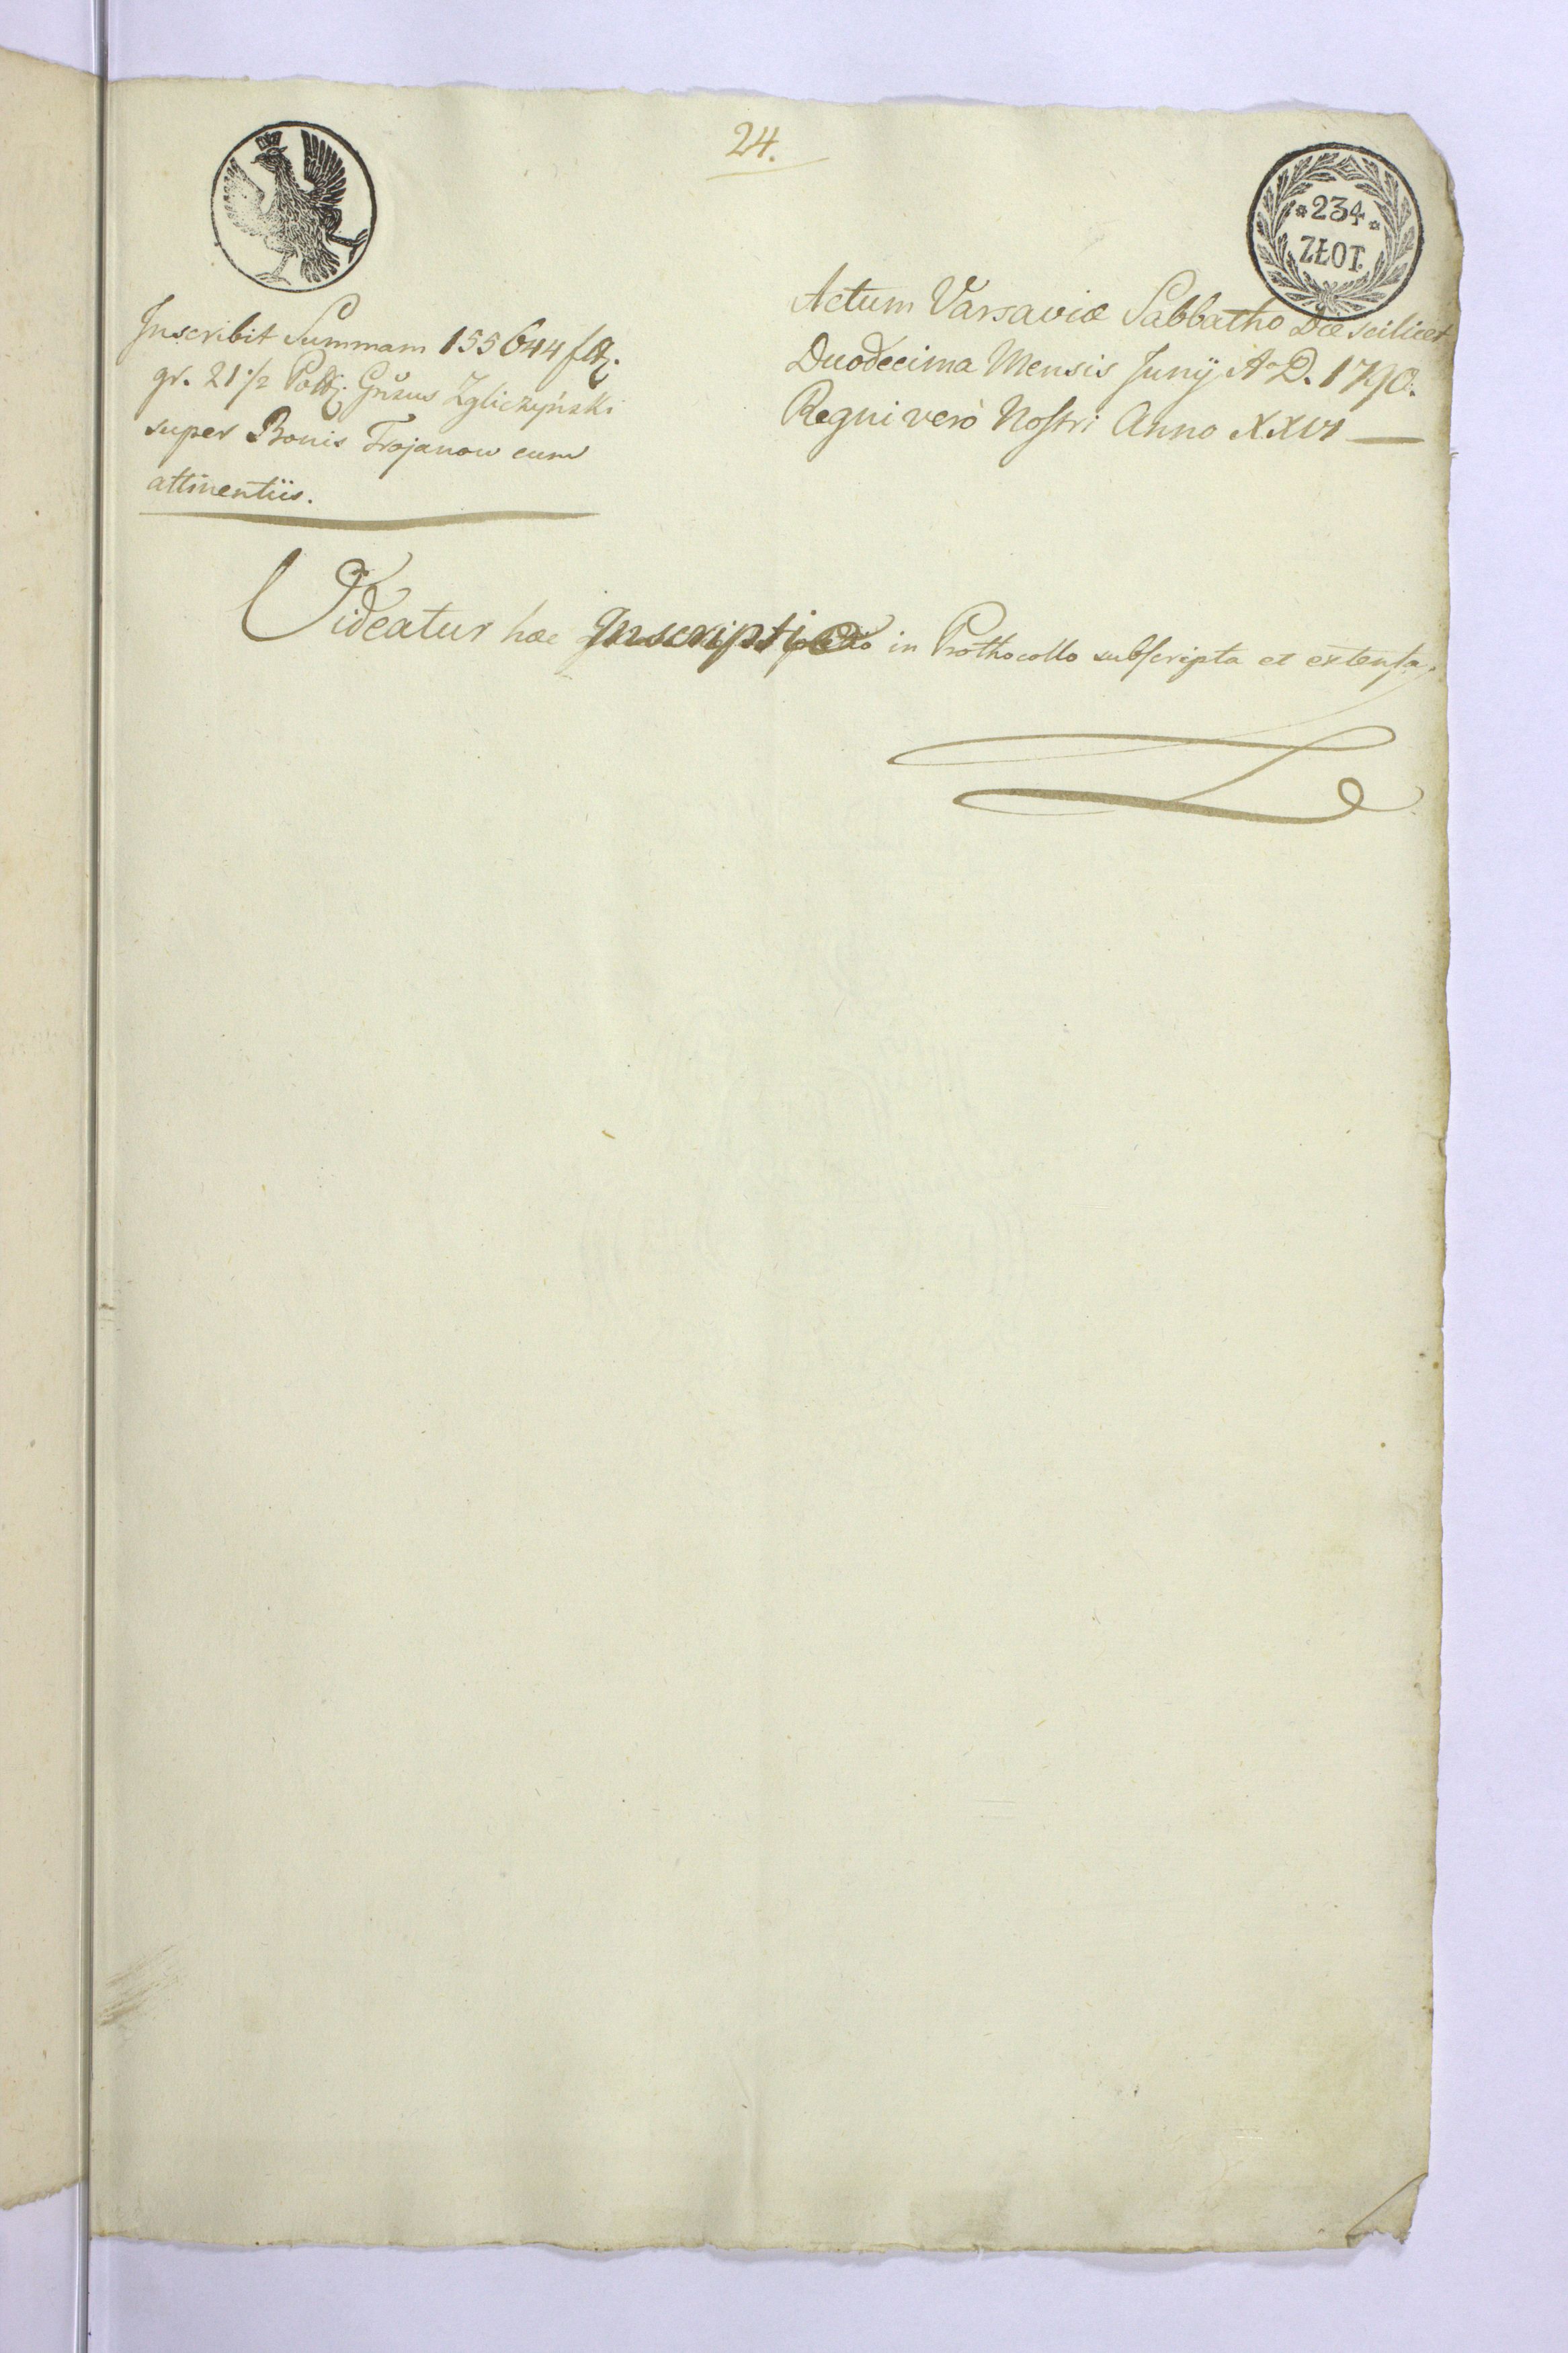 24.
* 234 *
ZŁOT.
Inscribit Summam 155644 fl.
gr. 21 1/2 Gnsus Zgliczyński
super Bonis Trojanow cum
attinentiis.
Actum Varsaviæ Sabbatho Die scilicet
Duodecima Mensis Junÿ A. D. 1790.
Regni verò Nostri Anno XXVI
Videatur hæc Inscriptio in Prothocollo subscripta et extensa.